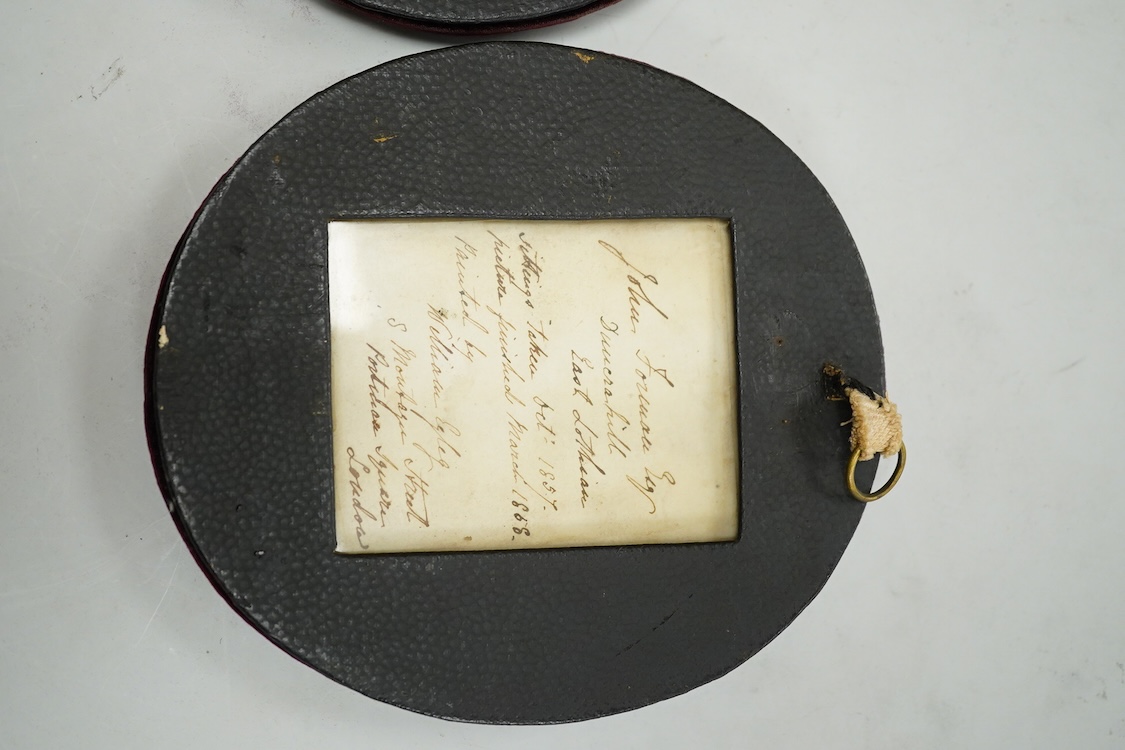 John Forman Esqr
Duncrahill
East Lothian
Sittings taken Octr 1857.
picture finished March 1858.
Painted by
William Egley
8 Montagu Street
Portman Square
London